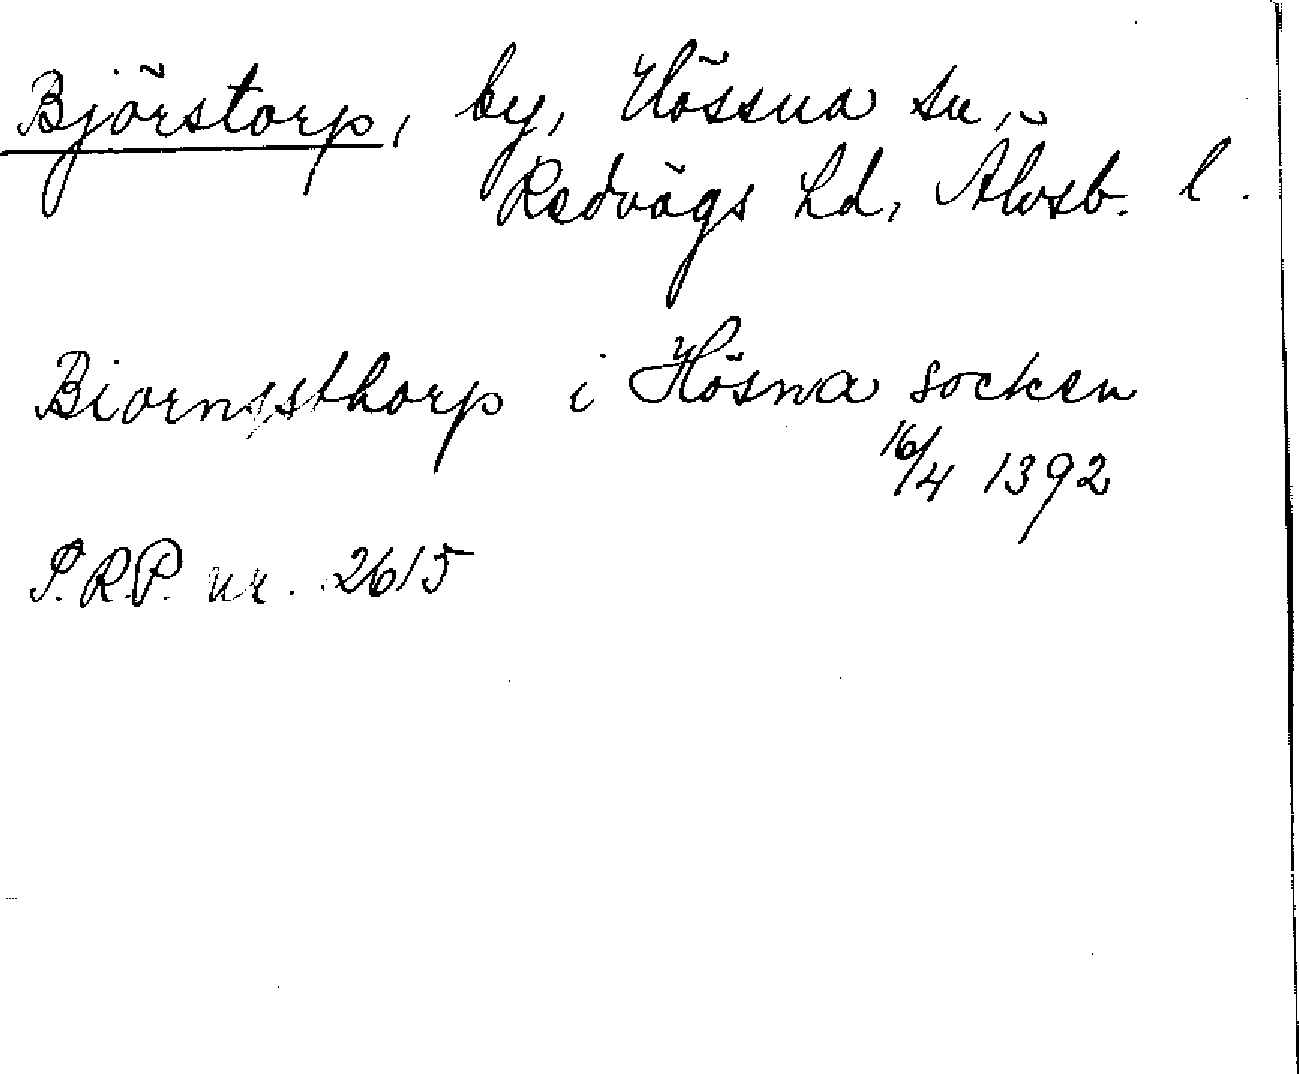 Björstorp, by, Hössna sn,
Redvägs hd, Älvsb. l.
Biorngsthorp i Hösna socken
16/4 1392
P.R.P. nr. 2615